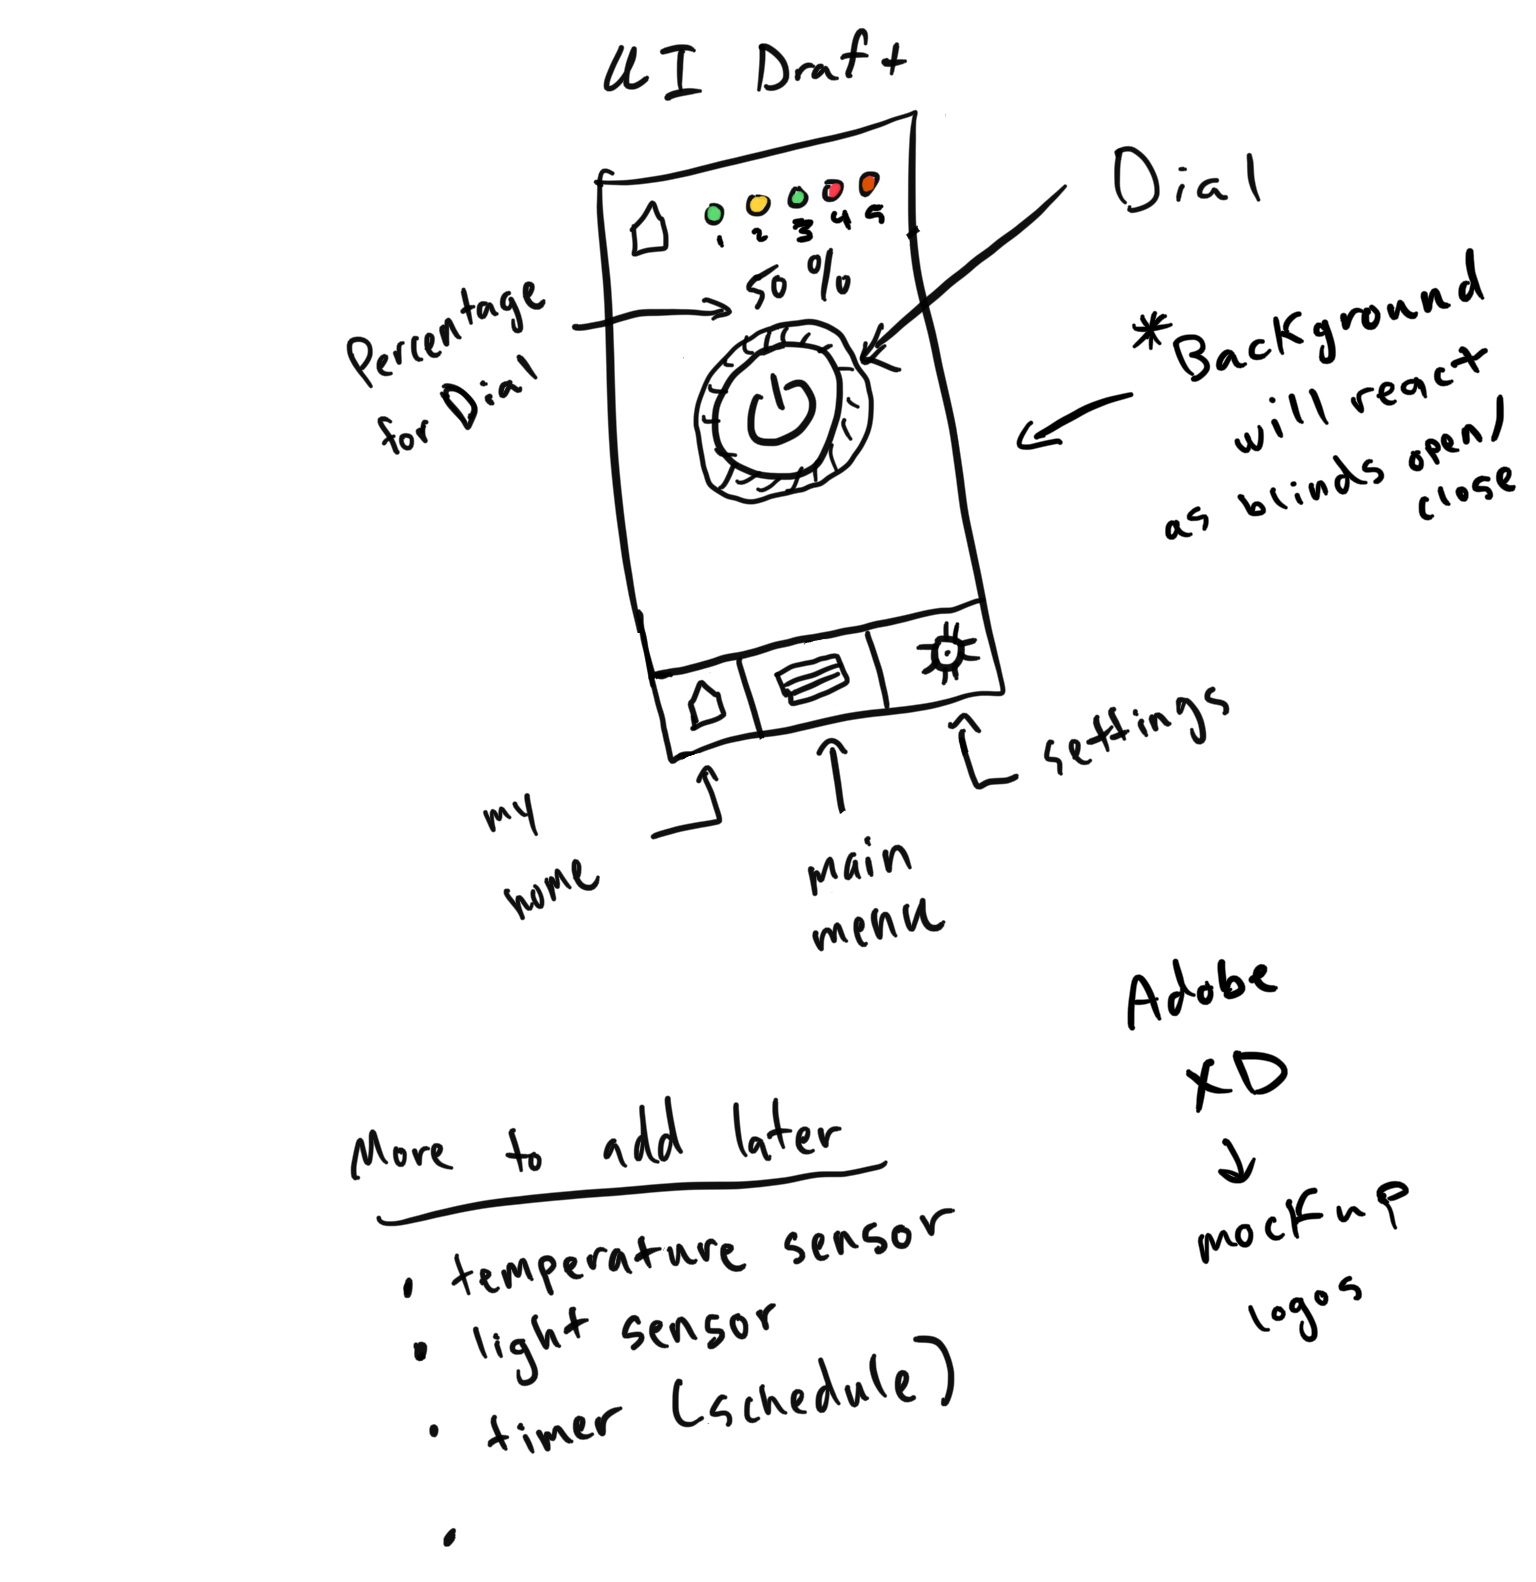 UI Draft
Dial
1 2 3 4 5
50%
Percentage
for Dial
*Background
will react
as blinds open/
close
settings
my
home
main
menu
Adobe
XD
mockup
logos
More to add later
• temperature sensor
• light sensor
• timer (schedule)
•